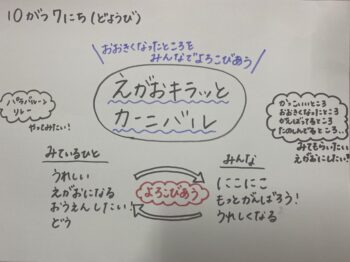 10がつ7にち(どようび)
おおきくなったところを
みんなでよろこびあう
えがおキラッと
カーニバル
パラバルーン
リレー
やってみたい!
かっこいいところ
おおきくなったところ
がんばってるところ
たのしんでるところ…
みてもらいたい
えがおにしたい!
みているひと
うれしい
えがおになる
おうえんしたい!
どう
よろこびあう
みんな
にこにこ
もっとがんばろう!
うれしくなる